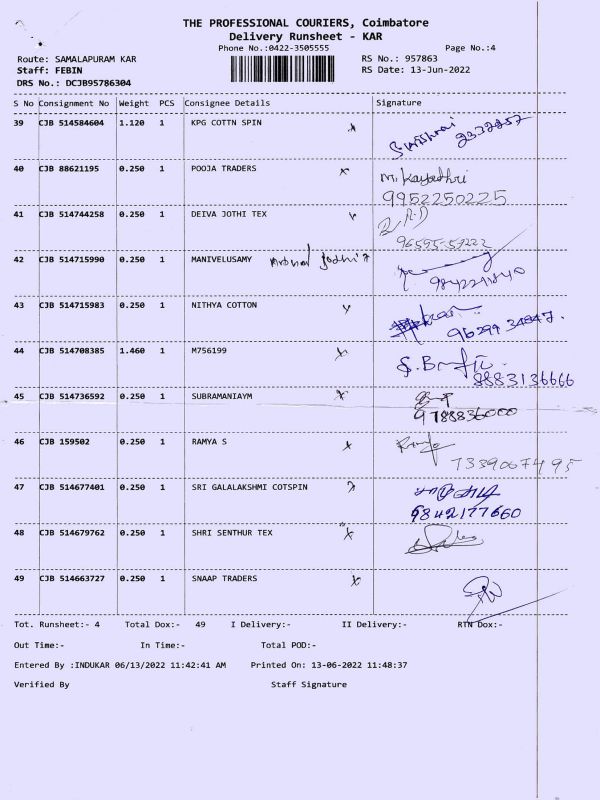 THE PROFESSIONAL COURIERS, Coimbatore
Delivery Runsheet - KAR
Phone No.:0422-3505555
Page No.:4
Route: SAMALAPURAM KAR
RS No.: 957863
Staff: FEBIN
RS Date: 13-Jun-2022
DRS No.: DCJB95786304
S No Consignment No Weight PCS Consignee Details Signature
39 CJB 514584604 1.120 1 KPG COTTN SPIN
40 CJB 88621195 0.250 1 POOJA TRADERS
9952250225
41 CJB 514744258 0.250 1 DEIVA JOTHI TEX
42 CJB 514715990 0.250 1 MANIVELUSAMY
43 CJB 514715983 0.250 1 NITHYA COTTON
44 CJB 514708385 1.460 1 M756199
8883136666
45 CJB 514736592 0.250 1 SUBRAMANIAYM
9788836000
46 CJB 159502 0.250 1 RAMYA S
7339067495
47 CJB 514677401 0.250 1 SRI GALALAKSHMI COTSPIN
9842177660
48 CJB 514679762 0.250 1 SHRI SENTHUR TEX
49 CJB 514663727 0.250 1 SNAAP TRADERS
Tot. Runsheet:- 4 Total Dox:- 49 I Delivery:- II Delivery:- RTN Dox:-
Out Time:- In Time:- Total POD:-
Entered By :INDUKAR 06/13/2022 11:42:41 AM Printed On: 13-06-2022 11:48:37
Verified By Staff Signature